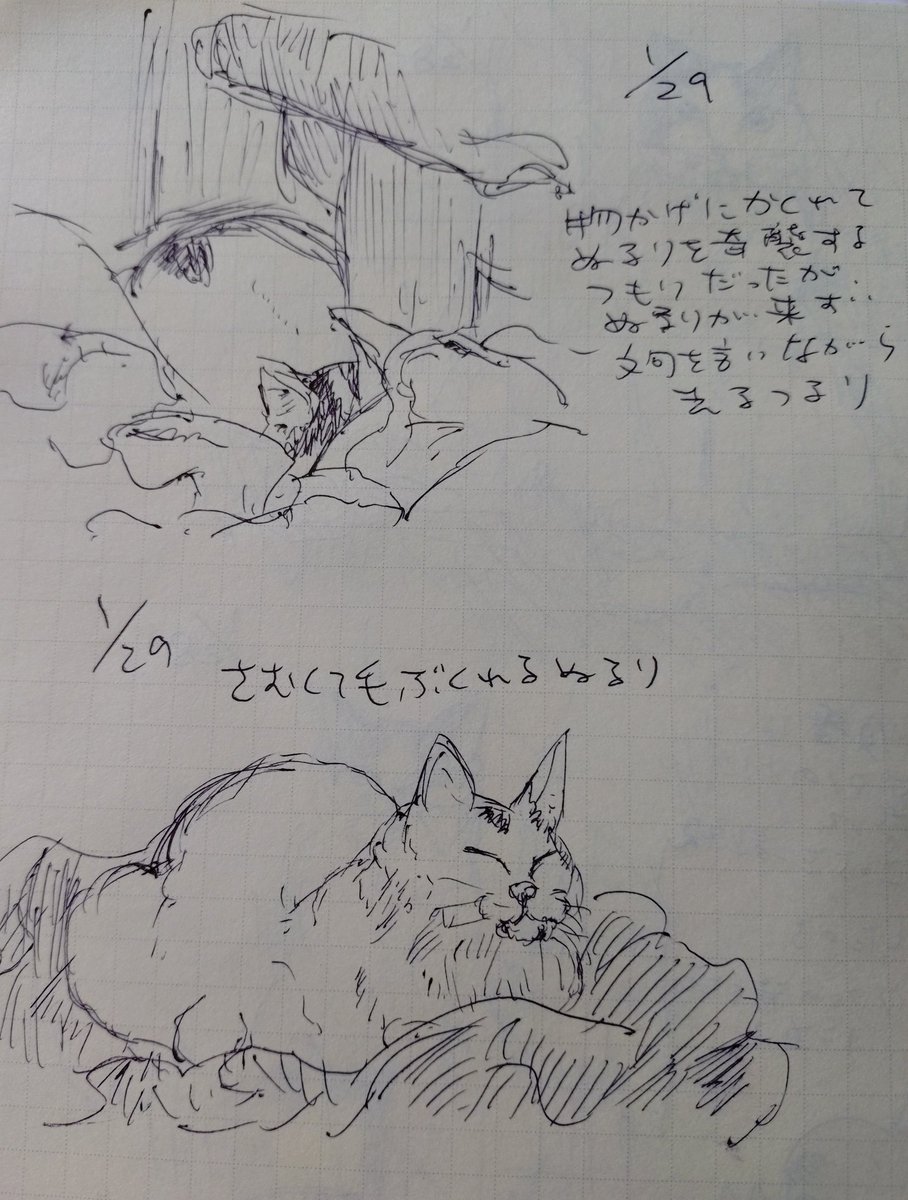 1/29
物かげにかくれて
ぬるりを奇襲する
つもりだったが‥
ぬるりが来ず‥
文句を言いながら
去るつるり
1/29
さむくて毛ぶくれるぬるり